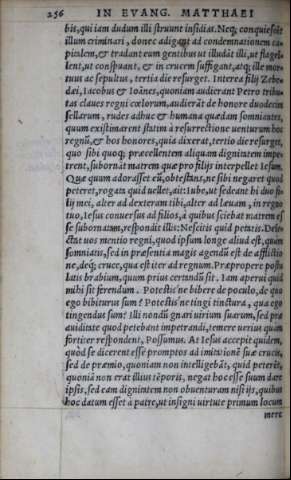 256 IN EVANG. MATTHAEI
bis, qui iam dudum illi struunt insidias. Neq; conquiescēt
illum criminari, donec adigant ad condemnationem ca-
pitalem, & tradant eum gentibus ut illudāt illi, ut flagel-
lent, ut conspuant, & in crucem suffigant, atq; ille mor-
tuus ac sepultus, tertia die resurget. Interea filij Zebe-
dæi, Iacobus & Ioānes, quoniam audierant Petro tribu-
tas claues regni cœlorum, audierāt de honore duodecim
sellarum, rudes adhuc & humana quædam somniantes,
quum existimarent statim à resurrectione uenturum hoc
regnū, & hos honores, quia dixerat, tertio die resurget,
quo sibi quoq; præcellentem aliquam dignitatem impe-
trent, subornāt matrem quæ pro filijs interpellet Iesum.
Quæ quum adorasset eū, obtestans, ne sibi negaret quod
peteret, rogata quid uellet, ait: Iube, ut sedeant hi duo fi-
lij mei, alter ad dexteram tibi, alter ad læuam, in regno
tuo, Iesus conuersus ad filios, à quibus sciebat matrem es
se subornatam, respondit illis: Nescitis quid petatis. Dele-
ctat uos mentio regni, quod ipsum longe aliud est, quàm
somniatis, sed in præsentia magis agendū est de afflictio
ne, deq; cruce, qua est iter ad regnum. Præpropere postu
latis brabium, quum prius certandū sit. Iam aperui quid
mihi sit ferendum. Potestis'ne bibere de poculo, de quo
ego bibiturus sum? Potestis'ne tingi tinctura, qua ego
tingendus sum? Illi nondū gnari uirium suarum, sed præ
auiditate quod petebant impetrandi, temere uerius quàm
fortiter respondent, Possumus. At Iesus accepit quidem,
quòd se dicerent esse promptos ad imitationē suæ crucis,
sed de præmio, quoniam non intelligebāt, quid peterēt,
quoniā non erat illius tēporis, negat hoc esse suum dare
ipsis, sed eam dignitatem non obuenturam nisi ijs, quibus
hoc datum esset à patre, ut insigni uirtute primum locum
mere